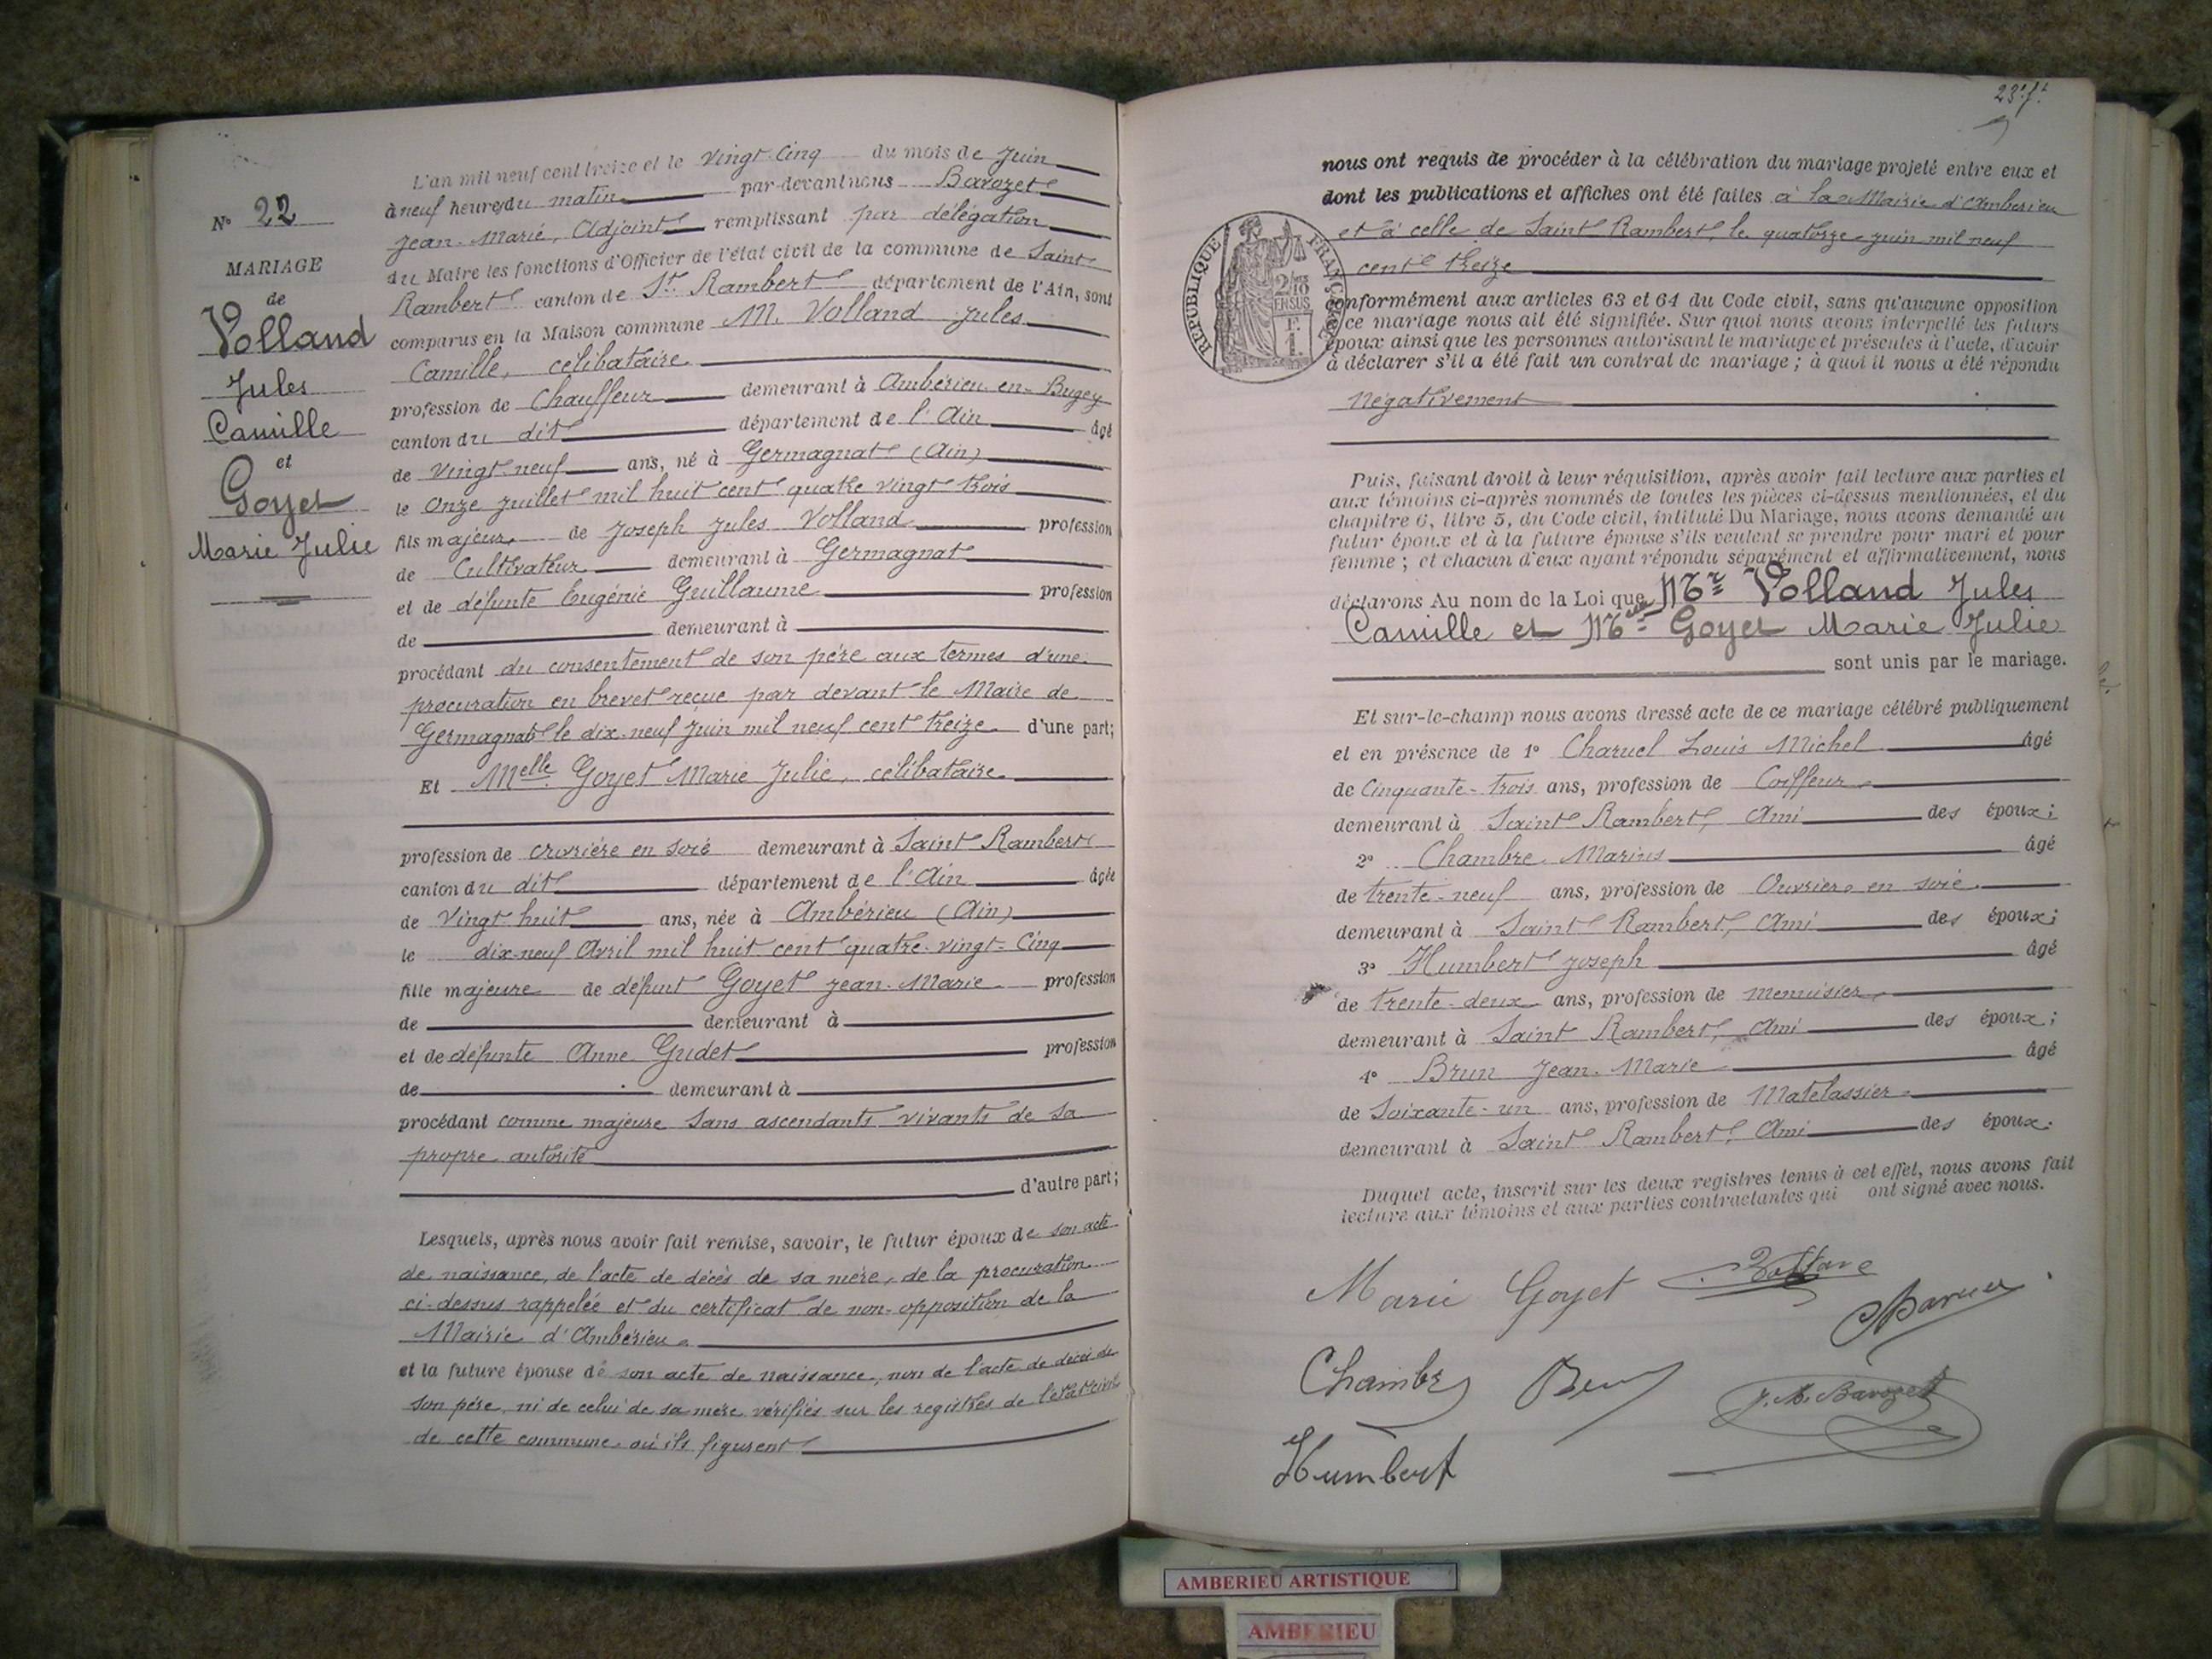 N° 22
MARIAGE
de
Volland
Jules
Camille
et
Goyet
Marie Julie
L'an mil neuf cent treize et le vingt-cinq du mois de Juin
à neuf heures du matin par-devant nous Barozet
Jean-Marie, Adjoint remplissant par délégation
du Maire les fonctions d'Officier de l'état civil de la commune de Saint
Rambert canton de St. Rambert département de l'Ain, sont
comparus en la Maison commune M. Volland Jules
Camille, célibataire
profession de Chauffeur demeurant à Ambérieu-en-Bugey
canton du dit département de l'Ain âgé
de vingt-neuf ans, né à Germagnat (Ain)
le Onze Juillet mil huit cent quatre vingt trois
fils majeur de Joseph Jules Volland profession
de Cultivateur demeurant à Germagnat
et de défunte Eugénie Guillaume profession
de demeurant à
procédant du consentement de son père aux termes d'une
procuration en brevet reçue par devant le Maire de
Germagnat le dix-neuf Juin mil neuf cent treize d'une part;
Et Melle Goyet Marie Julie, célibataire
profession de ouvrière en soie demeurant à Saint Rambert
canton du dit département de l'Ain âgée
de vingt-huit ans, née à Ambérieu (Ain)
le dix-neuf Avril mil huit cent quatre-vingt-cinq
fille majeure de défunt Goyet Jean-Marie profession
de demeurant à
et de défunte Anne Gudet profession
de demeurant à
procédant comme majeure sans ascendants vivants de sa
propre autorité
d'autre part;
Lesquels, après nous avoir fait remise, savoir, le futur époux de son acte
de naissance, de l'acte de décès de sa mère, de la procuration
ci-dessus rappelée et du certificat de non-opposition de la
Mairie d'Ambérieu.
et la future épouse de son acte de naissance, non de l'acte de décès de
son père, ni de celui de sa mère vérifiés sur les registres de l'état-civil
de cette commune où ils figurent
23e f.t
nous ont requis de procéder à la célébration du mariage projeté entre eux et
dont les publications et affiches ont été faites à la Mairie d'Ambérieu
et à celle de Saint Rambert, le quatorze juin mil neuf
cent treize
REPUBLIQUE FRANÇAISE
2/10
EN SUS
F.
1.
conformément aux articles 63 et 64 du Code civil, sans qu'aucune opposition
à ce mariage nous ait été signifiée. Sur quoi nous avons interpellé les futurs
époux ainsi que les personnes autorisant le mariage et présentes à l'acte, d'avoir
à déclarer s'il a été fait un contrat de mariage; à quoi il nous a été répondu
négativement
Puis, faisant droit à leur réquisition, après avoir fait lecture aux parties et
aux témoins ci-après nommés de toutes les pièces ci-dessus mentionnées, et du
chapitre 6, titre 5, du Code civil, intitulé Du Mariage, nous avons demandé au
futur époux et à la future épouse s'ils veulent se prendre pour mari et pour
femme; et chacun d'eux ayant répondu séparément et affirmativement, nous
déclarons Au nom de la Loi que Mr Volland Jules
Camille et Melle Goyet Marie Julie
sont unis par le mariage.
Et sur-le-champ nous avons dressé acte de ce mariage célébré publiquement
et en présence de 1° Charuel Louis Michel âgé
de Cinquante-trois ans, profession de Coiffeur
demeurant à Saint Rambert, Ami des époux;
2° Chambre Marius âgé
de trente-neuf ans, profession de Ouvrier en soie
demeurant à Saint Rambert, Ami des époux;
3° Humbert Joseph âgé
de trente-deux ans, profession de menuisier
demeurant à Saint Rambert, Ami des époux;
4° Brun Jean-Marie âgé
de Soixante-un ans, profession de Matelassier
demeurant à Saint Rambert, Ami des époux.
Duquel acte, inscrit sur les deux registres tenus à cet effet, nous avons fait
lecture aux témoins et aux parties contractantes qui ont signé avec nous.
Marie Goyet Volland
Charuel
Chambre Brun J. M. Barozet
Humbert
AMBERIEU ARTISTIQUE
AMBERIEU